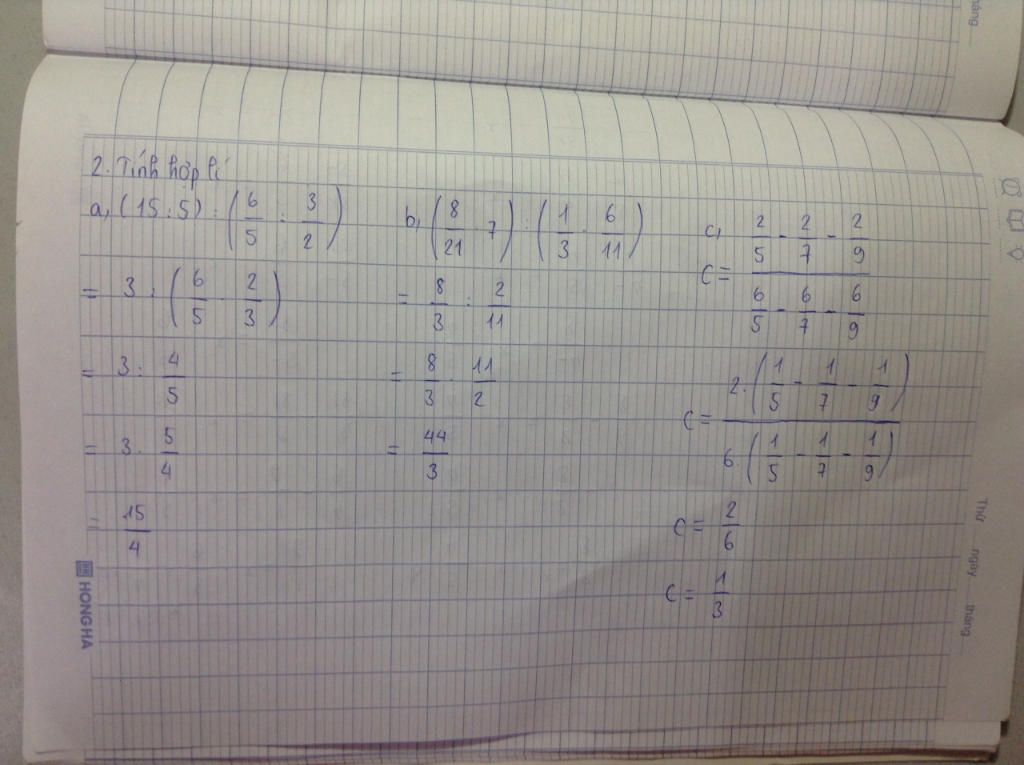 2. Tính hợp lí
a, (15 : 5) : (6/5 : 3/2)
= 3 : (6/5 . 2/3)
= 3 : 4/5
= 3 . 5/4
= 15/4
b, (8/21 . 7) : (1/3 . 6/11)
= 8/3 : 2/11
= 8/3 . 11/2
= 44/3
c, C = (2/5 - 2/7 - 2/9)/(6/5 - 6/7 - 6/9)
C = 2.(1/5 - 1/7 - 1/9)/6.(1/5 - 1/7 - 1/9)
C = 2/6
C = 1/3
HONG HA
Thứ ngày tháng
tháng